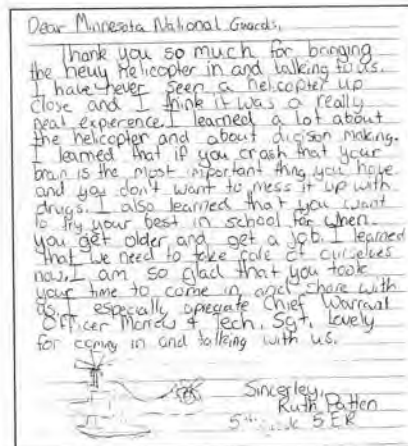 Dear Minnesota National Guards,
Thank you so much for bringing
the heuy helicopter in and talking to us.
I have never seen a helicopter up
close and I think it was a really
neat experence. I learned a lot about
the helicopter and about dicison making.
I learned that if you crash that your
brain is the most important thing you have
and you don't want to mess it up with
drugs. I also learned that you want
to try your best in school for when
you get older and get a job. I learned
that we need to take care of ourselves
now. I am so glad that you took
your time to come in and share with
us. I especially apreciate Chief Warrant
Officer Morrow & Tech. Sgt. Lovely
for coming in and talking with us.
Sincerley,
Ruth Patten
5 ER